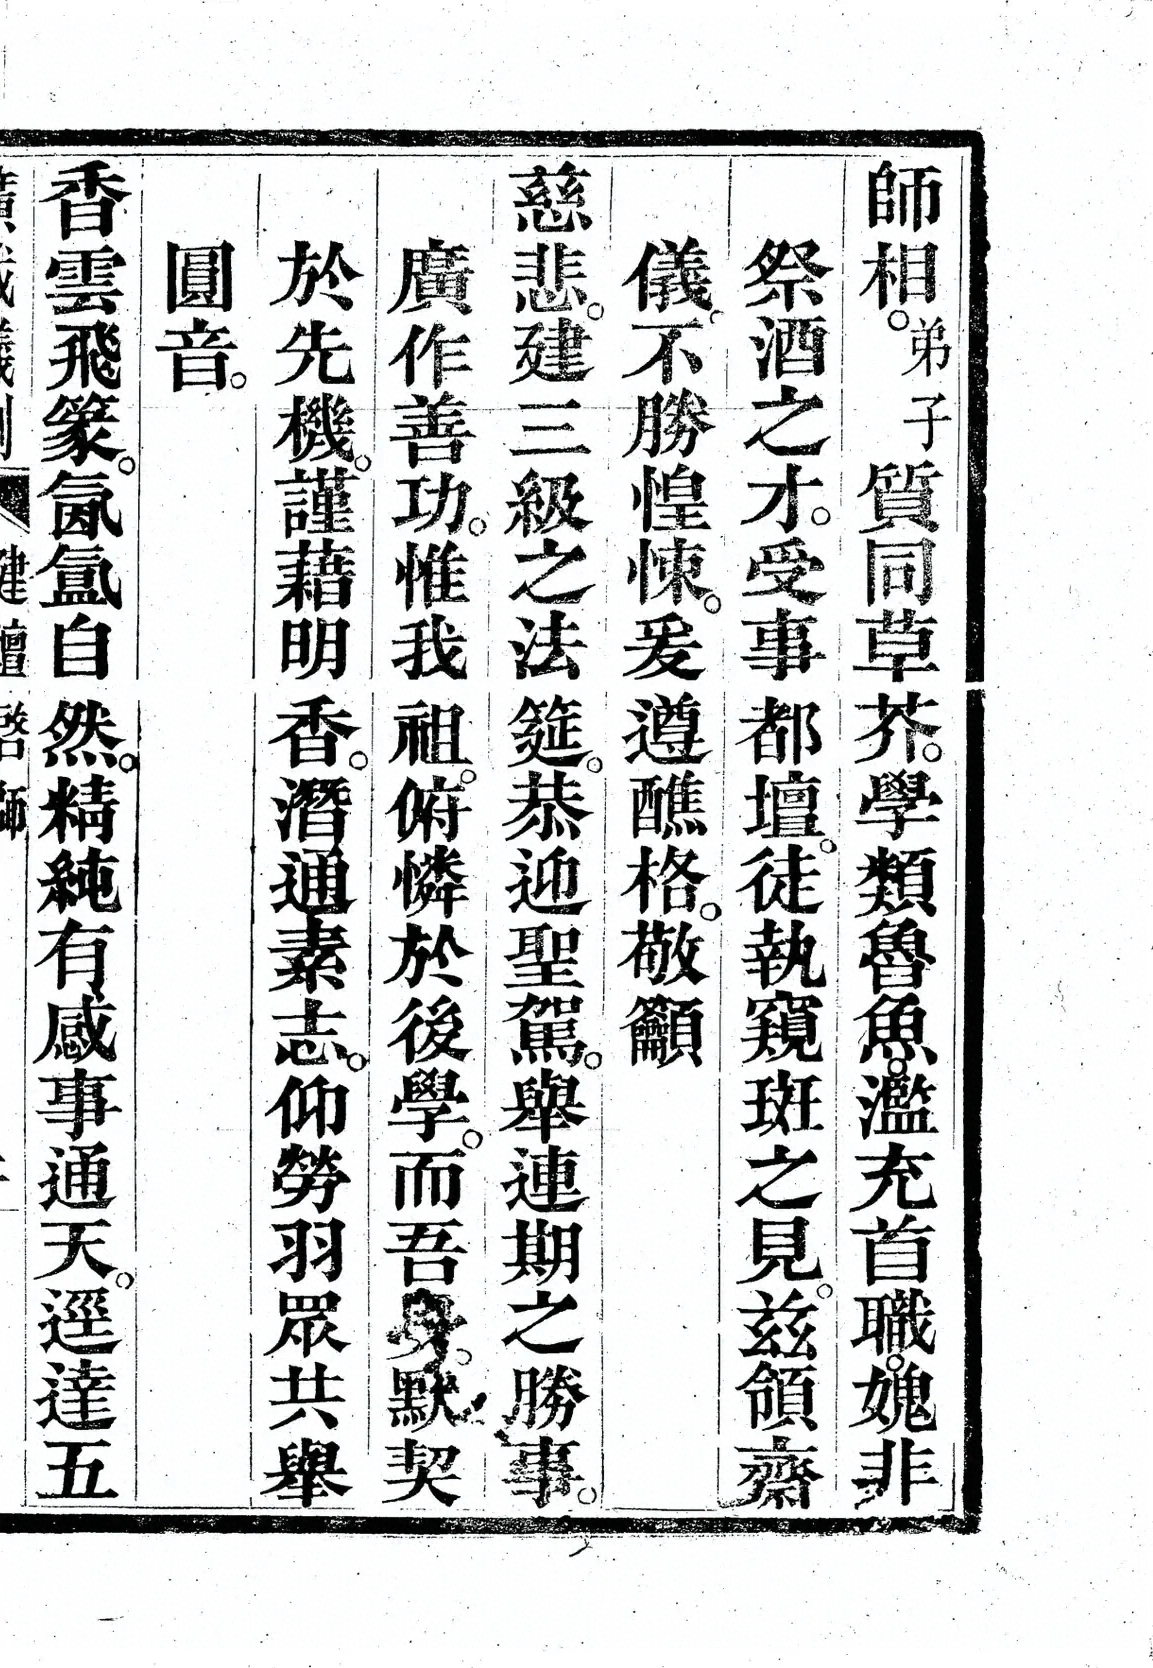 師相。弟子質同草芥。學類魯魚。濫充首職。媿非
祭酒之才。受事都壇。徒執窺斑之見。茲領齋
儀。不勝惶悚。爰遵醮格。敬籲
慈悲。建三級之法筵。恭迎聖駕。舉連期之勝事。
廣作善功。惟我祖。俯憐於後學。而吾身。默契
於先機。謹藉明香。潛通素志。仰勞羽眾共舉
圓音。
香雲飛篆。氤氳自然。精純有感事通天。逕達五